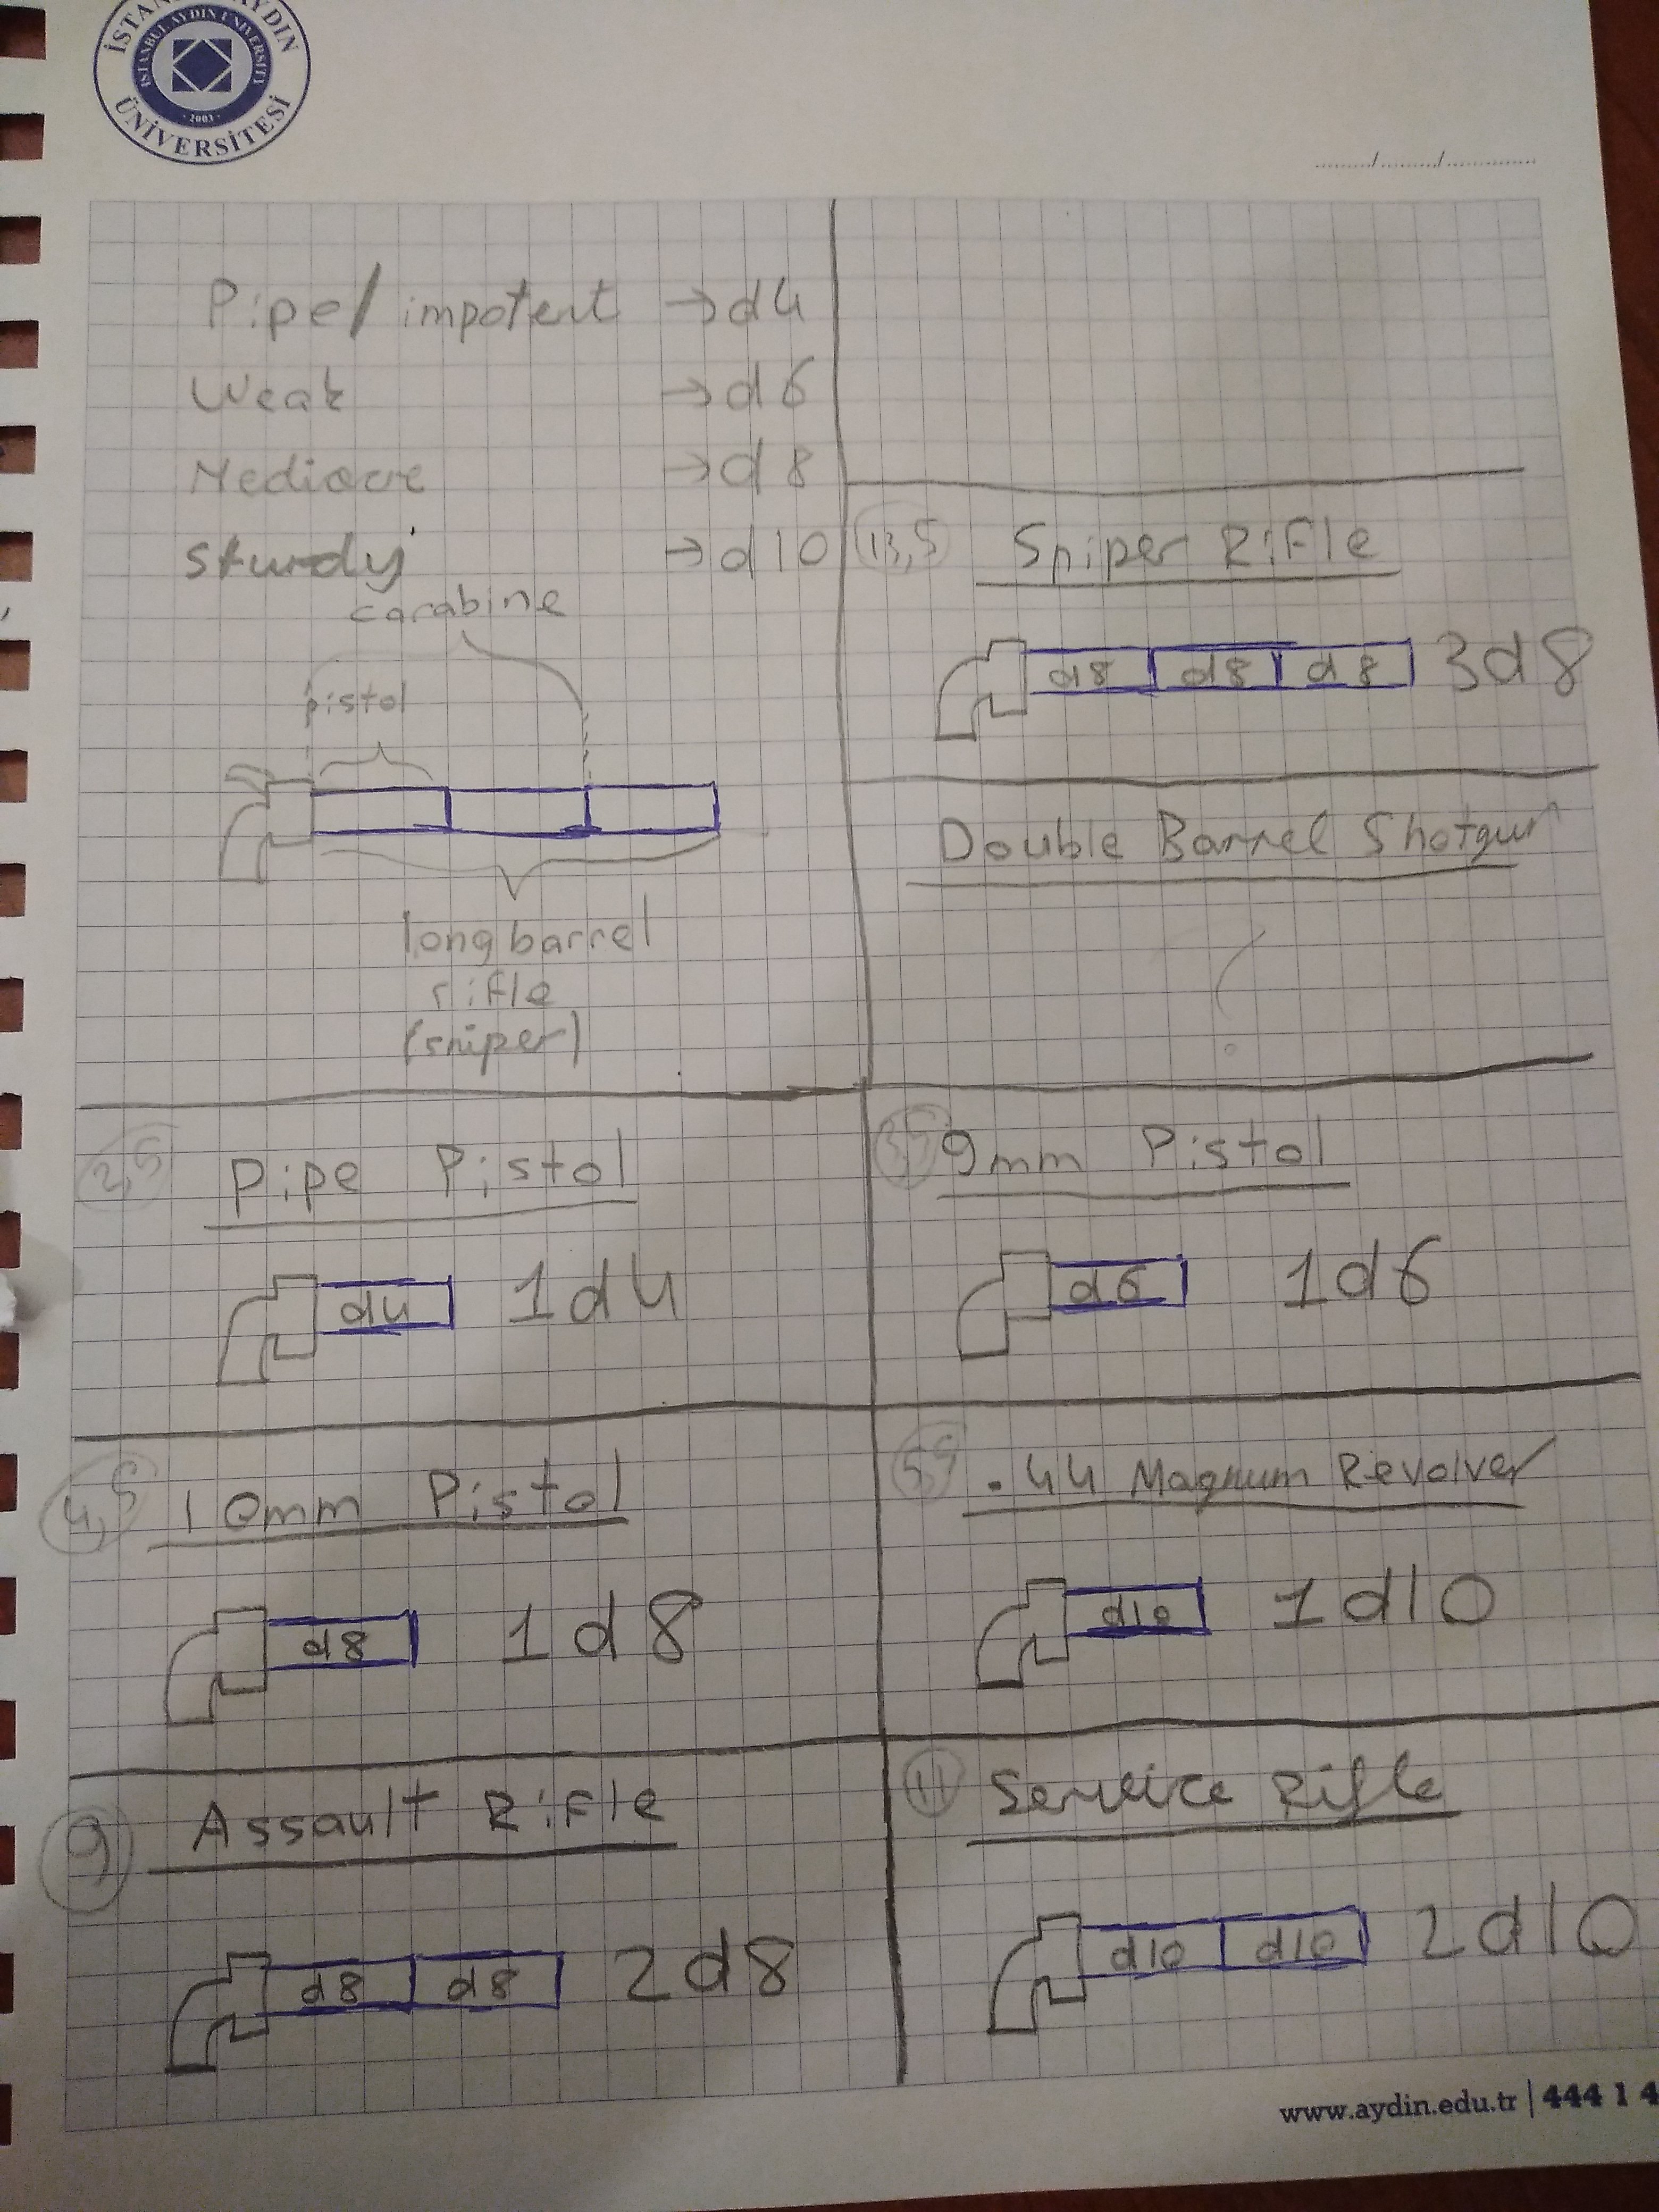 İSTANBUL AYDIN ÜNİVERSİTESİ
ISTANBUL AYDIN UNIVERSITY
· 2003 ·
......../......../.............
Pipe/impotent → d4
Weak → d6
Mediocre → d8
Sturdy → d10
carabine
pistol
long barrel
rifle
(sniper)
13,5 Sniper Rifle
d8 d8 d8 3d8
Double Barrel Shotgun
?
2,5 Pipe Pistol
d4 1d4
3,5 9mm Pistol
d6 1d6
4,5 10mm Pistol
d8 1d8
5,5 .44 Magnum Revolver
d10 1d10
9 Assault Rifle
d8 d8 2d8
11 Service Rifle
d10 d10 2d10
www.aydin.edu.tr | 444 1 4